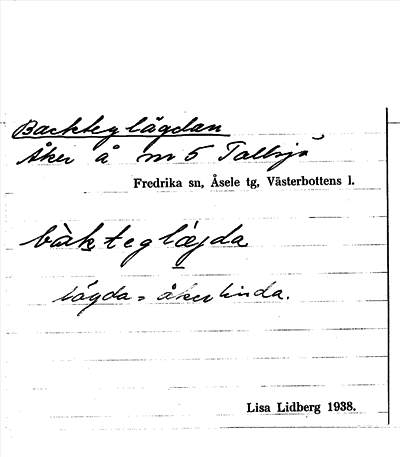 Backteglägdan
Åker å m 5 Tallsjö
Fredrika sn, Åsele tg, Västerbottens l.
bàkteglæjda
lägda = åkerlinda.
Lisa Lidberg 1938.